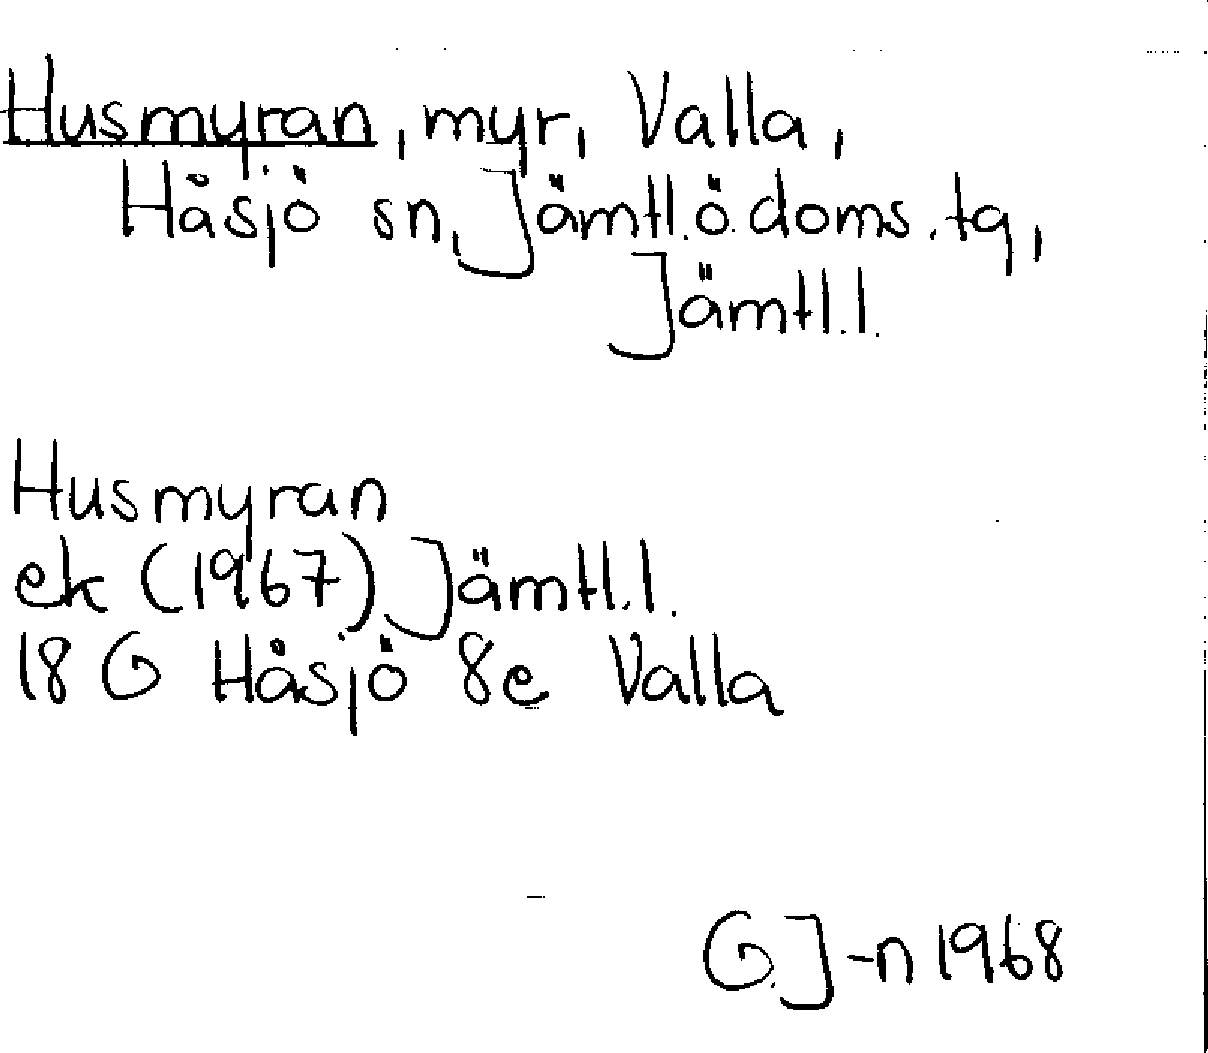 Husmyran, myr, Valla,
Håsjö sn, Jämtl.ö.doms.tg,
Jämtl.l.
Husmyran
ek (1967) Jämtl.l.
18 G Håsjö 8e Valla
G.J-n 1968